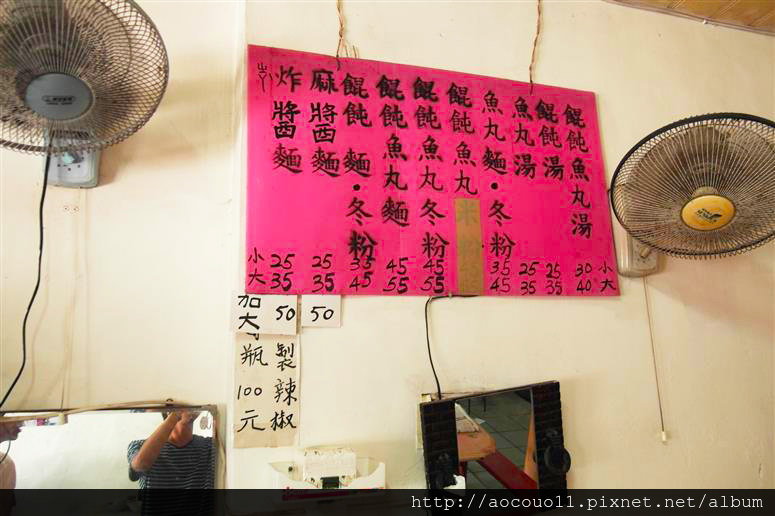 小 大
餛飩魚丸湯 30 40
餛飩湯 25 35
魚丸湯 25 35
魚丸麵·冬粉 35 45
餛飩魚丸
餛飩魚丸冬粉 45 55
餛飩魚丸麵 45 55
餛飩麵·冬粉 35 45
麻醬麵 25 35
炸醬麵 25 35
小 大
加大 50
50
製辣椒
瓶100元
http://aocouo11.pixnet.net/album